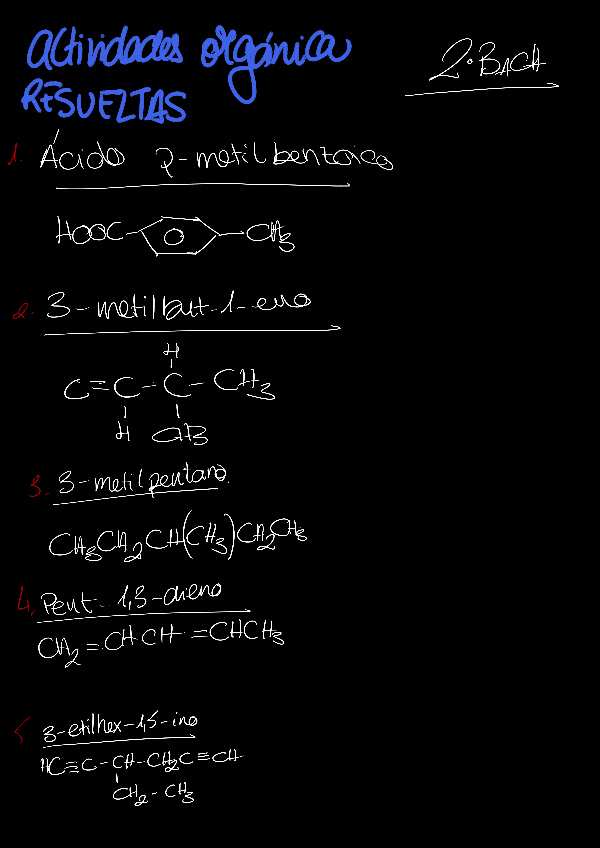 Actividades orgánica
2º BACH
RESUELTAS
1. Ácido p-metilbenzoico
HOOC-⌬-CH3
2. 3-metilbut-1-eno
H
C=C-C-CH3
H CH3
3. 3-metilpentano
CH3CH2CH(CH3)CH2CH3
4. Pent-1,3-dieno
CH2=CHCH=CHCH3
5. 3-etilhex-1,5-ino
HC≡C-CH-CH2C≡CH
CH2-CH3